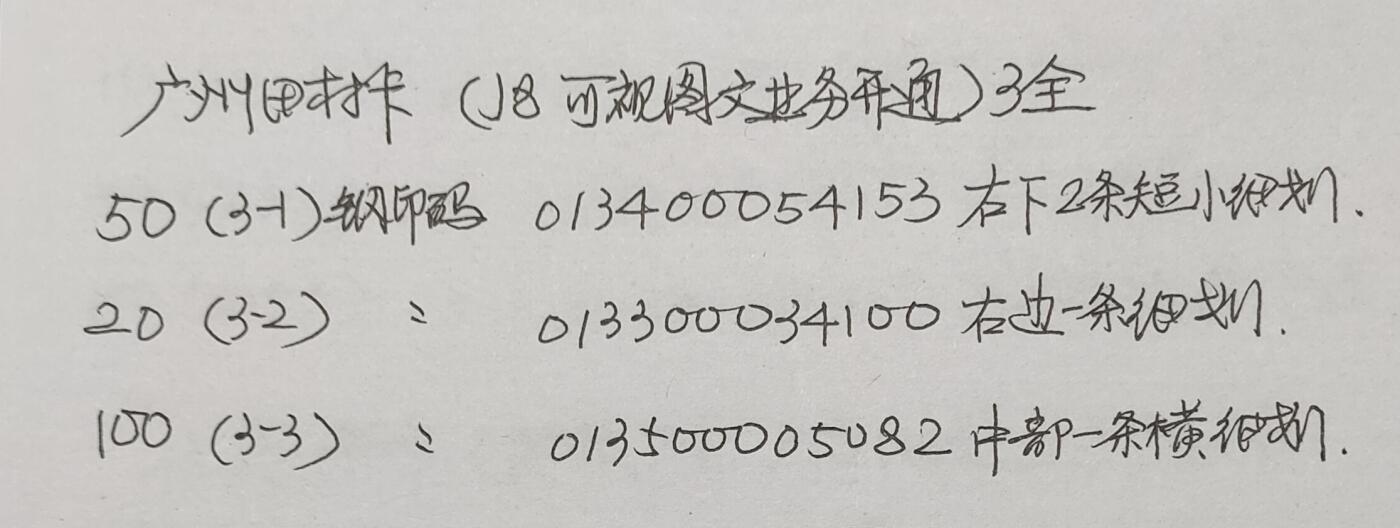 广州田村卡（J8可视图文业务开通）3全
50（3-1）钢印码 013400054153 右下2条短小细划.
20（3-2） 〃 013300034100 右边一条细划.
100（3-3） 〃 013500005082 中部一条横细划.